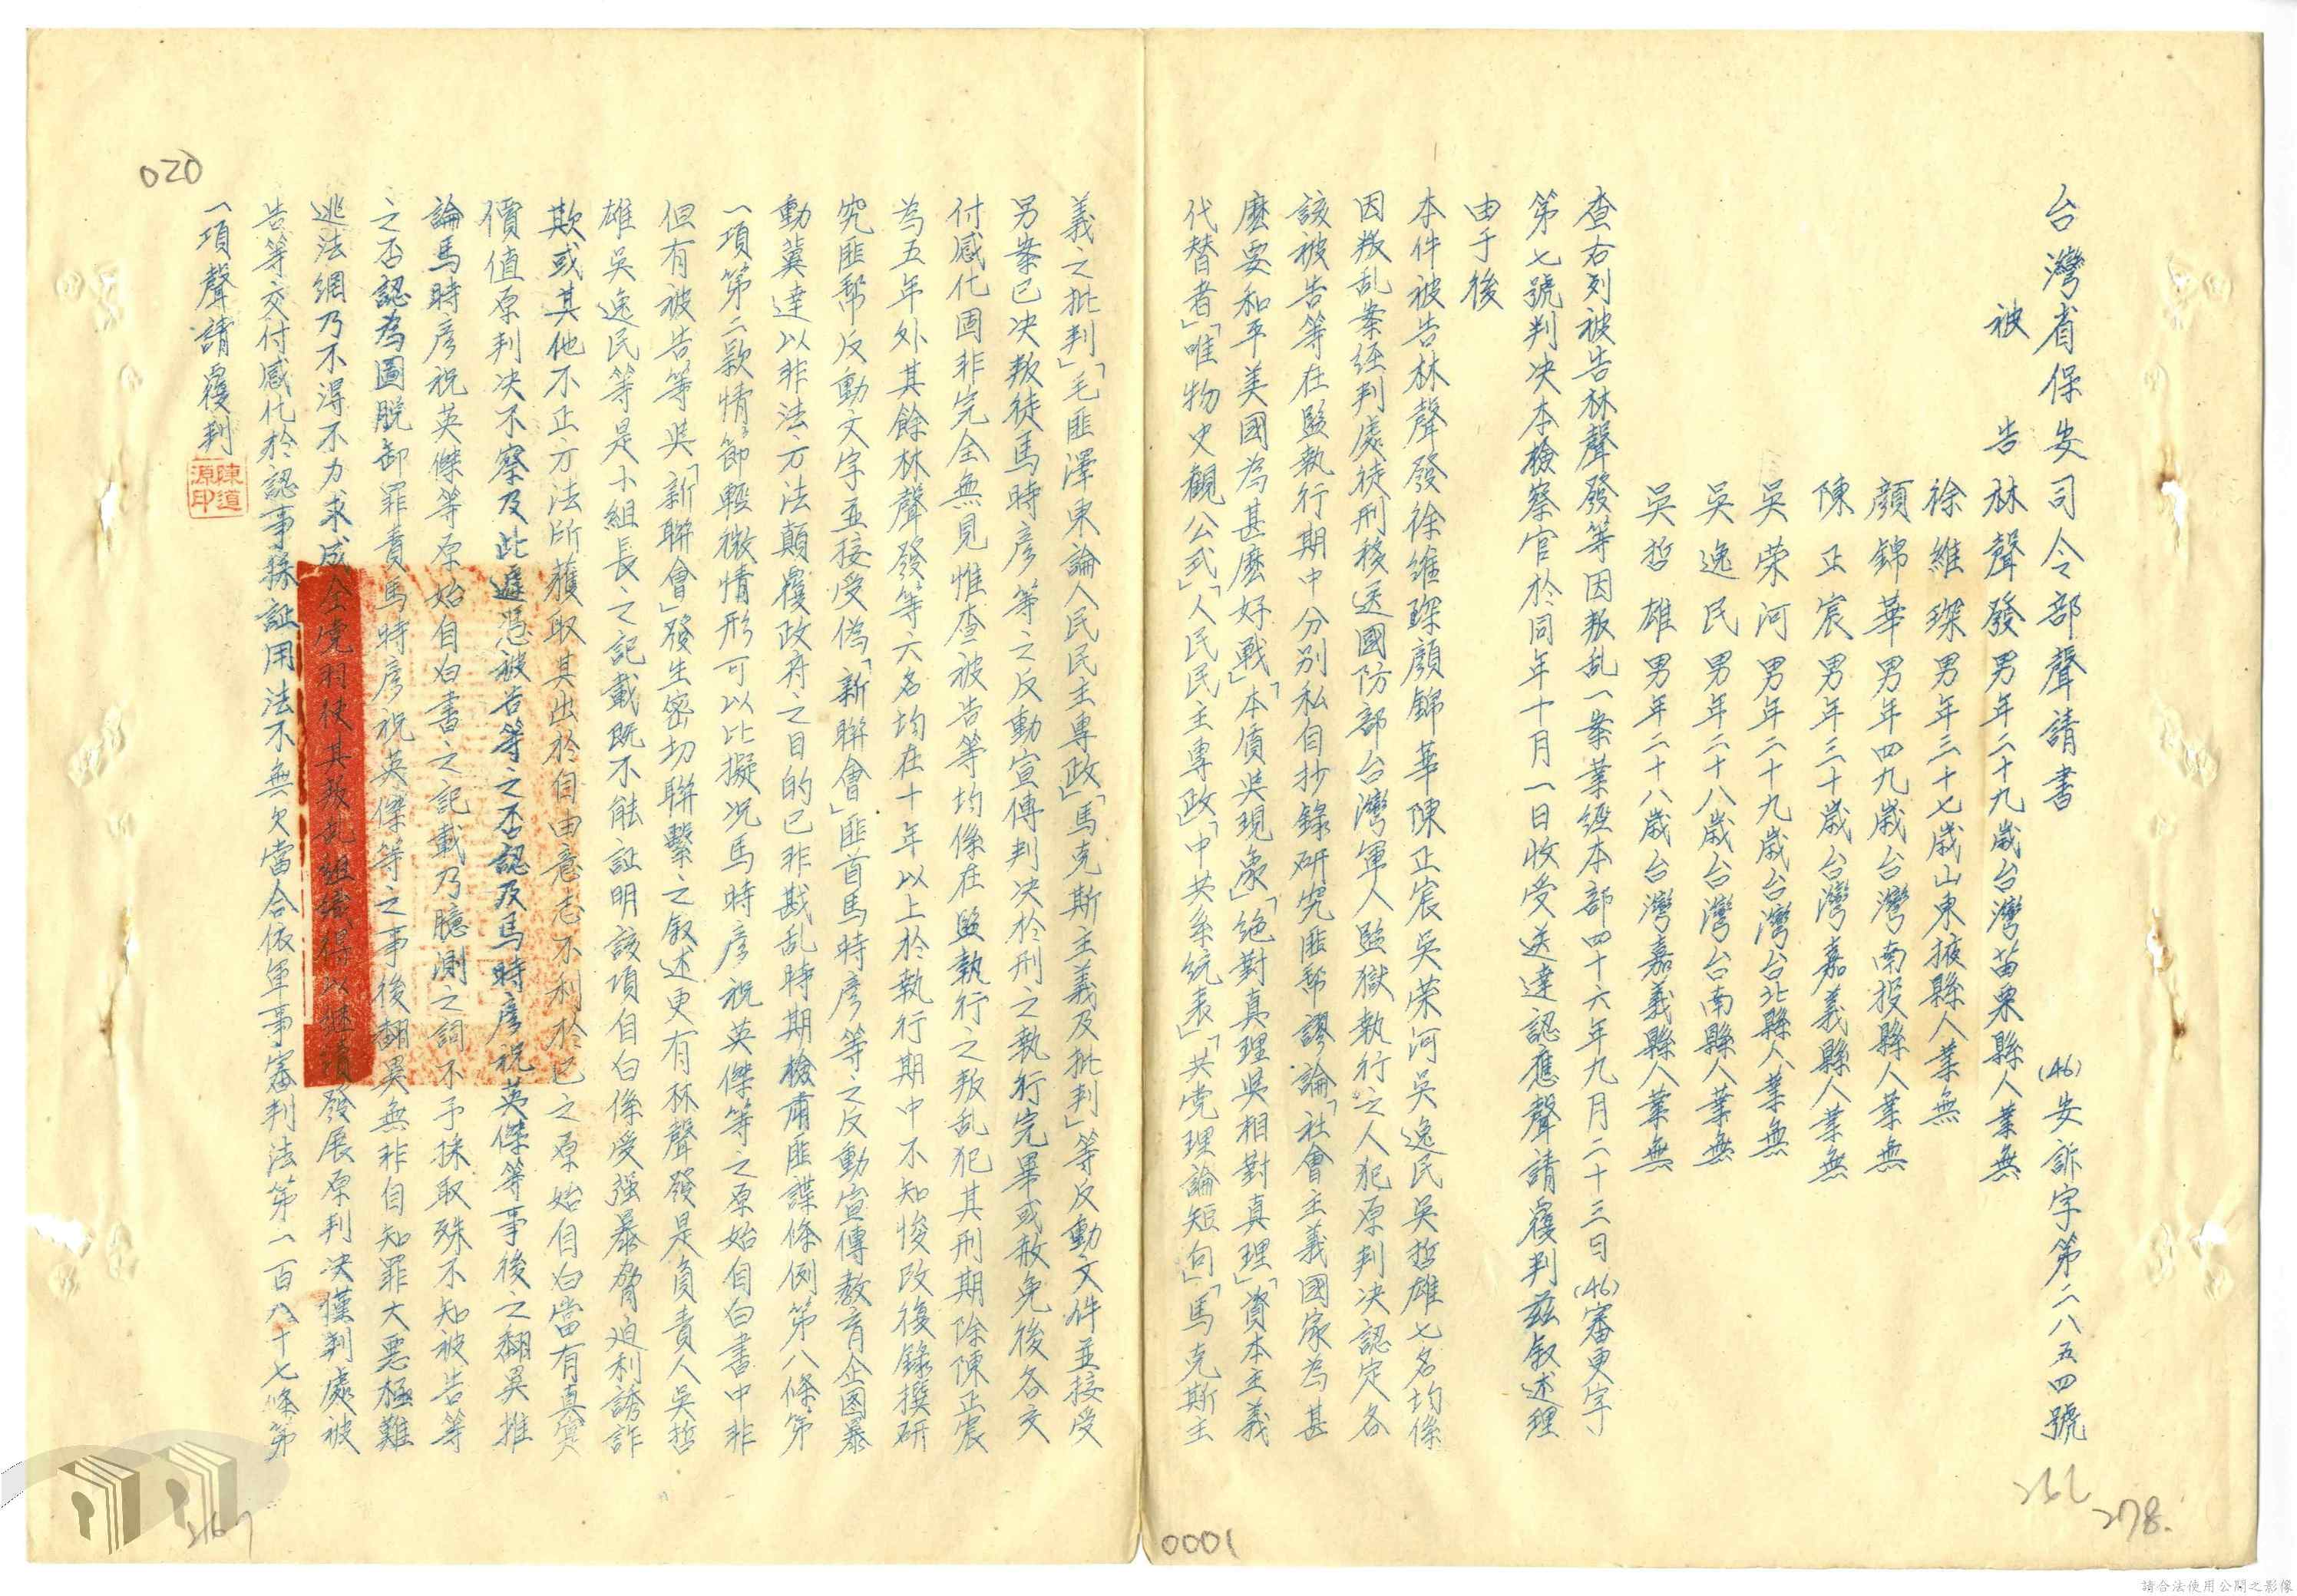 台灣省保安司令部聲請書
(46)安訴字第二八五四號
被告 林聲發 男年二十九歲台灣苗栗縣人業無
徐維琛 男年三十七歲山東掖縣人業無
顏錦華 男年四九歲台灣南投縣人業無
陳正宸 男年三十歲台灣嘉義縣人業無
吳荣河 男年二十九歲台灣台北縣人業無
吳逸民 男年二十八歲台灣台南縣人業無
吳哲雄 男年二十八歲台灣嘉義縣人業無
查右列被告林聲發等因叛乱一案業經本部四十六年九月二十三日(46)審更字
第七號判决本檢察官於同年十月一日收受送達認應聲請覆判兹叙述理
由于後
本件被告林聲發徐維琛顏錦華陳正宸吳荣河吳逸民吳哲雄七名均係
因叛乱案經判處徒刑移送國防部台灣軍人監獄執行之人犯原判决認定各
該被告等在監執行期中分别私自抄錄研究匪幫謬論「社會主義國家為甚
麽要和平美國為甚麽好戰」「本債吳現象」「絕對真理吳相對真理」「資本主義
代替者」「唯物史觀公式」「人民民主專政」「中共系統表」「共党理論短句」「馬克斯主
義之批判」「毛匪澤東論人民民主專政」「馬克斯主義及批判」等反動文件並接受
另案已决叛徒馬時彦等之反動宣傳判决於刑之執行完畢或赦免後各交
付感化固非完全無見惟查被告等均係在監執行之叛乱犯其刑期除陳正宸
為五年外其餘林聲發等六名均在十年以上於執行期中不知悛改後錄撰研
究匪幫反動文字並接受偽「新聯會」匪首馬時彦等之反動宣傳教育企图暴
動冀達以非法方法顛覆政府之目的已非戡乱時期檢肅匪諜條例第八條第
一項第二款情節輕微情形可以比擬况馬時彦祝英傑等之原始自白書中非
但有被告等吳「新聯會」發生密切聯繫之叙述更有林聲發是負責人吳哲
雄吳逸民等是小組長之記載既不能証明該項自白係受强暴脅迫利誘詐
欺或其他不正方法所獲取其出於自由意志不利於己之原始自白當有真实
價值原判决不察及此遽憑被告等之否認及馬時彦祝英傑等事後之翻異推
論馬時彦祝英傑等原始自白書之記載乃臆測之詞不予採取殊不知被告等
之否認為圖脱卸罪責馬時彦祝英傑等之事後翻異無非自知罪大惡極難
逃法網乃不得不力求成全党羽使其叛乱組織得以继續發展原判决僅判處被
告等交付感化於認事採証用法不無欠當合依軍事審判法第一百八十七條第
一項聲請覆判
陳道源印
020
0001
278.
請合法使用公開之影像